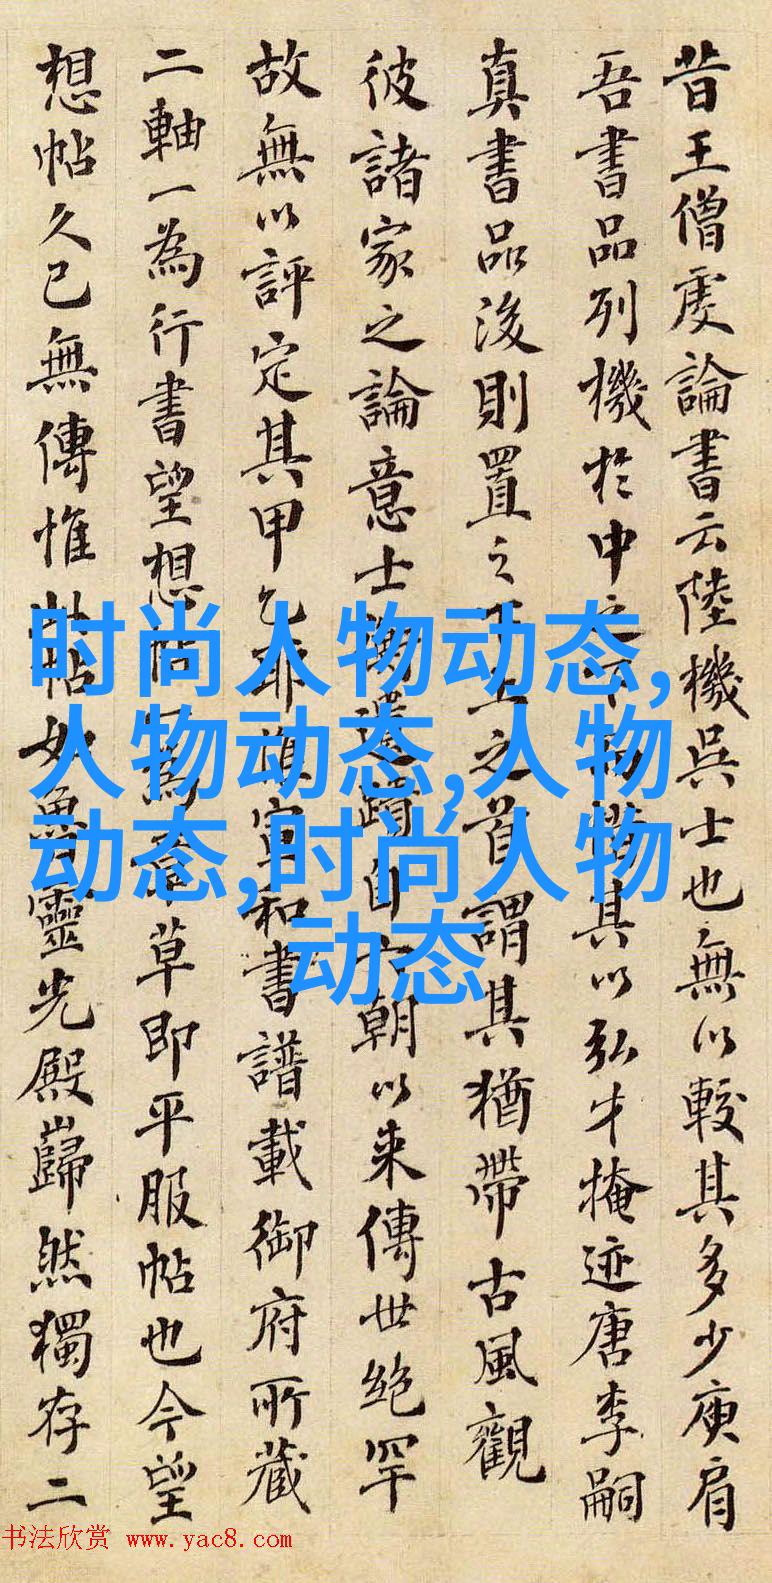 昔王僧虔論書云陸機吳士也無以較其多少庾肩
吾書品列機於中之其以弘才掩迹唐李嗣
真書品後則置之下上之首謂其猶帶古風觀
彼諸家之論意士自六朝以来傳世絶罕
故無以評定其甲乙耶惟宣和書譜載御府所藏
二軸一為行書望想帖一為章草即平服帖也今望
想帖久已無傳惟此帖如魯靈光殿巋然獨存二
时尚人物动态,
人物动态,人物
动态,时尚人物
动态
书法欣赏 www.yac8.com